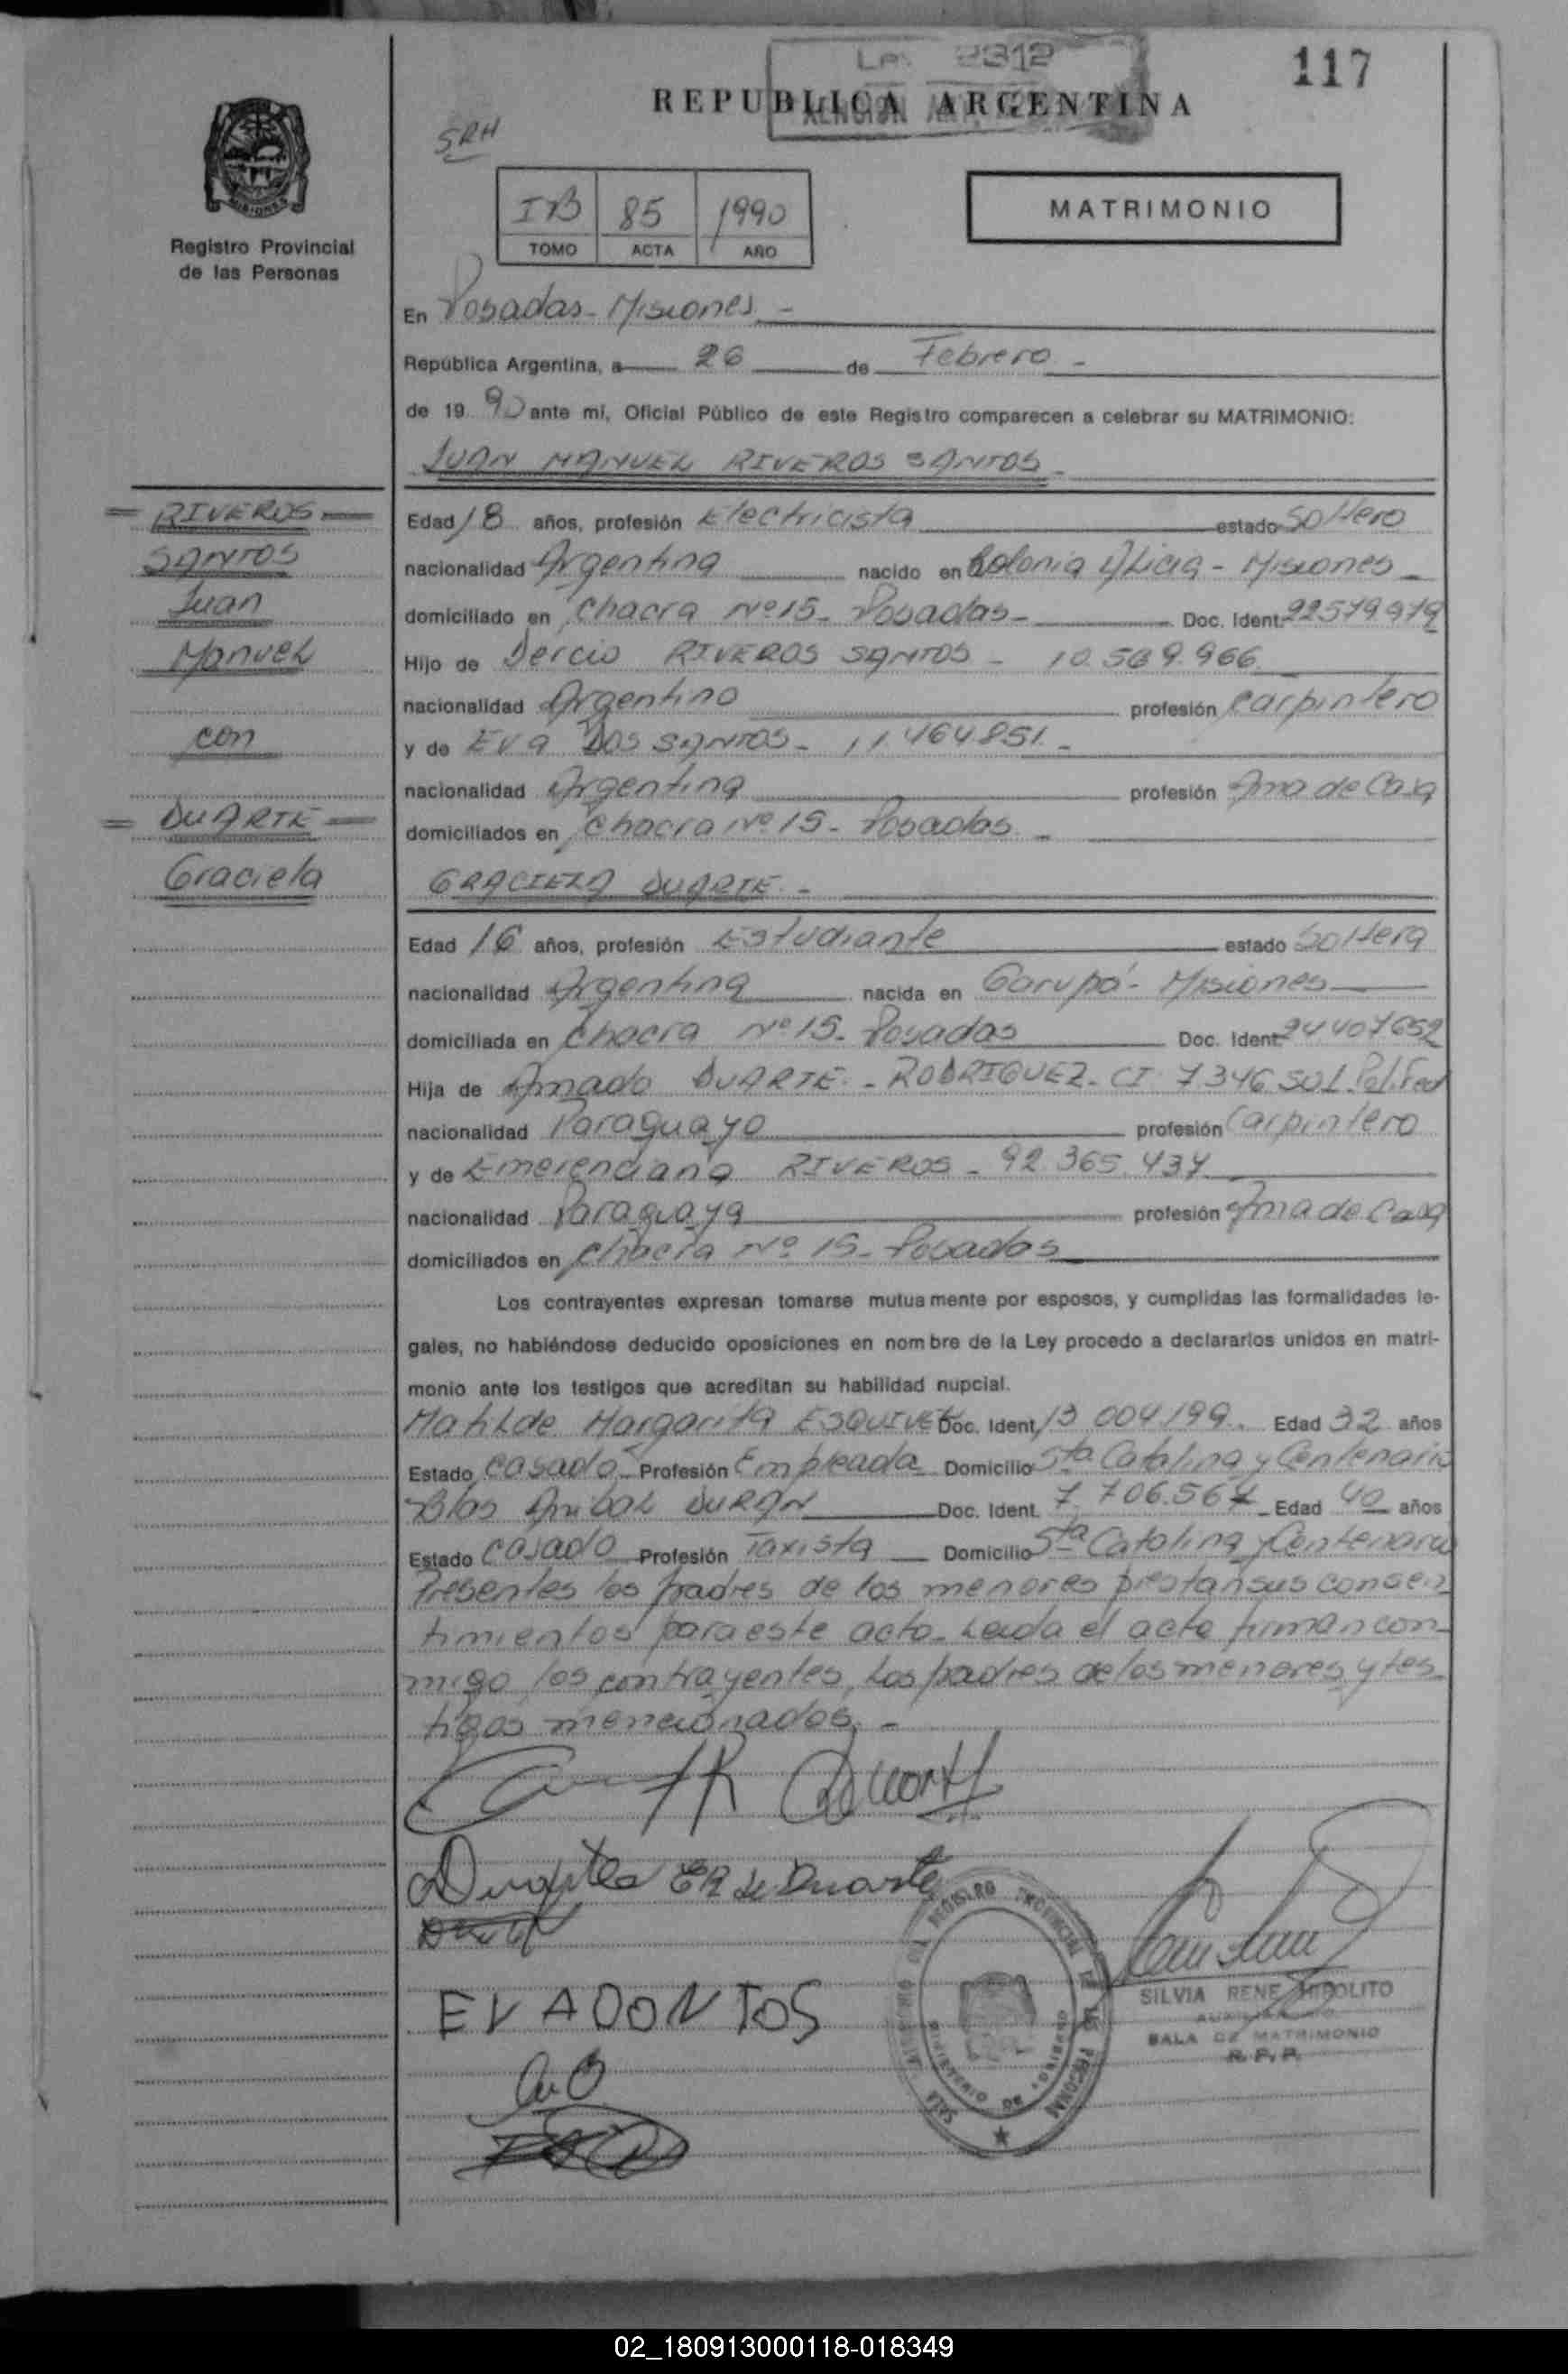 117
Ley 2312
REPUBLICA ARGENTINA
SRH
MISIONES
Registro Provincial
de las Personas
85 1990
TOMO ACTA AÑO
MATRIMONIO
En Posadas - Misiones -
República Argentina, a 26 de Febrero -
de 19 90 ante mí, Oficial Público de este Registro comparecen a celebrar su MATRIMONIO:
JUAN MANUEL RIVEROS SANTOS -
= RIVEROS =
SANTOS
Juan
Manuel
con
= DUARTE =
Graciela
Edad 18 años, profesión Electricista estado Soltero
nacionalidad Argentina nacido en Colonia Alicia - Misiones -
domiciliado en Chacra Nº 15 - Posadas - Doc. Ident. 22579.979
Hijo de Dercio RIVEROS SANTOS - 10.569.966
nacionalidad Argentino profesión Carpintero
y de EVA DOS SANTOS - 11.464.851 -
nacionalidad Argentina profesión Ama de Casa
domiciliados en Chacra Nº 15 - Posadas -
GRACIELA DUARTE -
Edad 16 años, profesión Estudiante estado Soltera
nacionalidad Argentina nacida en Garupá - Misiones
domiciliada en Chacra Nº 15 - Posadas Doc. Ident. 24.407652
Hija de Amado DUARTE - RODRIGUEZ - CI 7346.501 Pol. Fed
nacionalidad Paraguayo profesión Carpintero
y de Emerenciana RIVEROS - 92.365.434
nacionalidad Paraguaya profesión Ama de Casa
domiciliados en Chacra Nº 15 - Posadas
Los contrayentes expresan tomarse mutuamente por esposos, y cumplidas las formalidades le-
gales, no habiéndose deducido oposiciones en nombre de la Ley procedo a declararlos unidos en matri-
monio ante los testigos que acreditan su habilidad nupcial.
Matilde Margarita ESQUIVEL Doc. Ident. 13 004199 Edad 32 años
Estado Casada Profesión Empleada Domicilio Sta Catalina y Centenario
Blas Anibal DURAN Doc. Ident. 7.706.567 Edad 40 años
Estado Casado Profesión Taxista Domicilio Sta Catalina y Centenario
Presentes los padres de los menores prestan sus consen-
timientos para este acto - Leida el acta firman con-
migo los contrayentes, los padres de los menores y tes-
tigos mencionados. -
Duarte
ER de Duarte
EVADONTOS
REGISTRO PROVINCIAL DE LAS PERSONAS
MINISTERIO DE GOBIERNO
SILVIA RENE HIPOLITO
SALA DE MATRIMONIO
R. P. P.
02_180913000118-018349